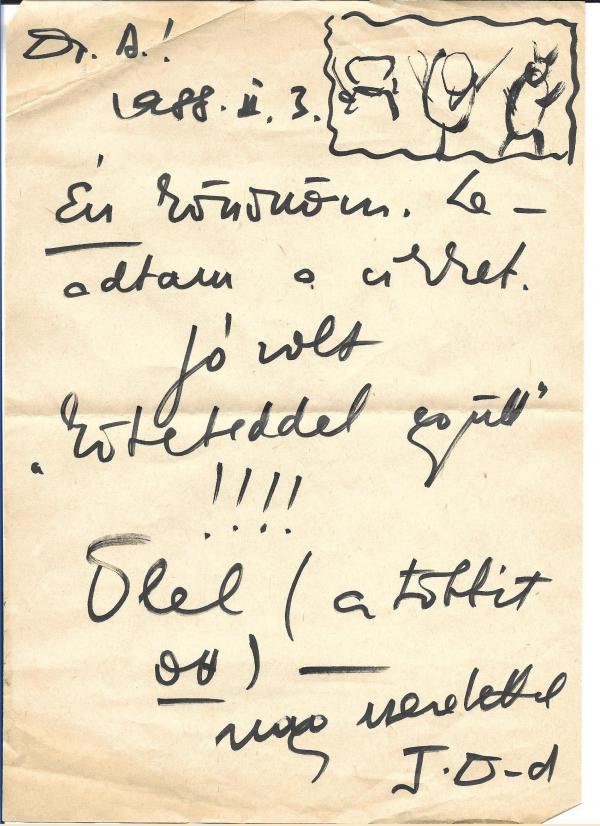 Dr. A.!
1988. II. 3.
Én köszönöm. Le-
adtam a cikket.
Jó volt
"köteteddel együtt"
!!!!
Ölel (a többit
ott) —
nagy szeretettel
J. O-d